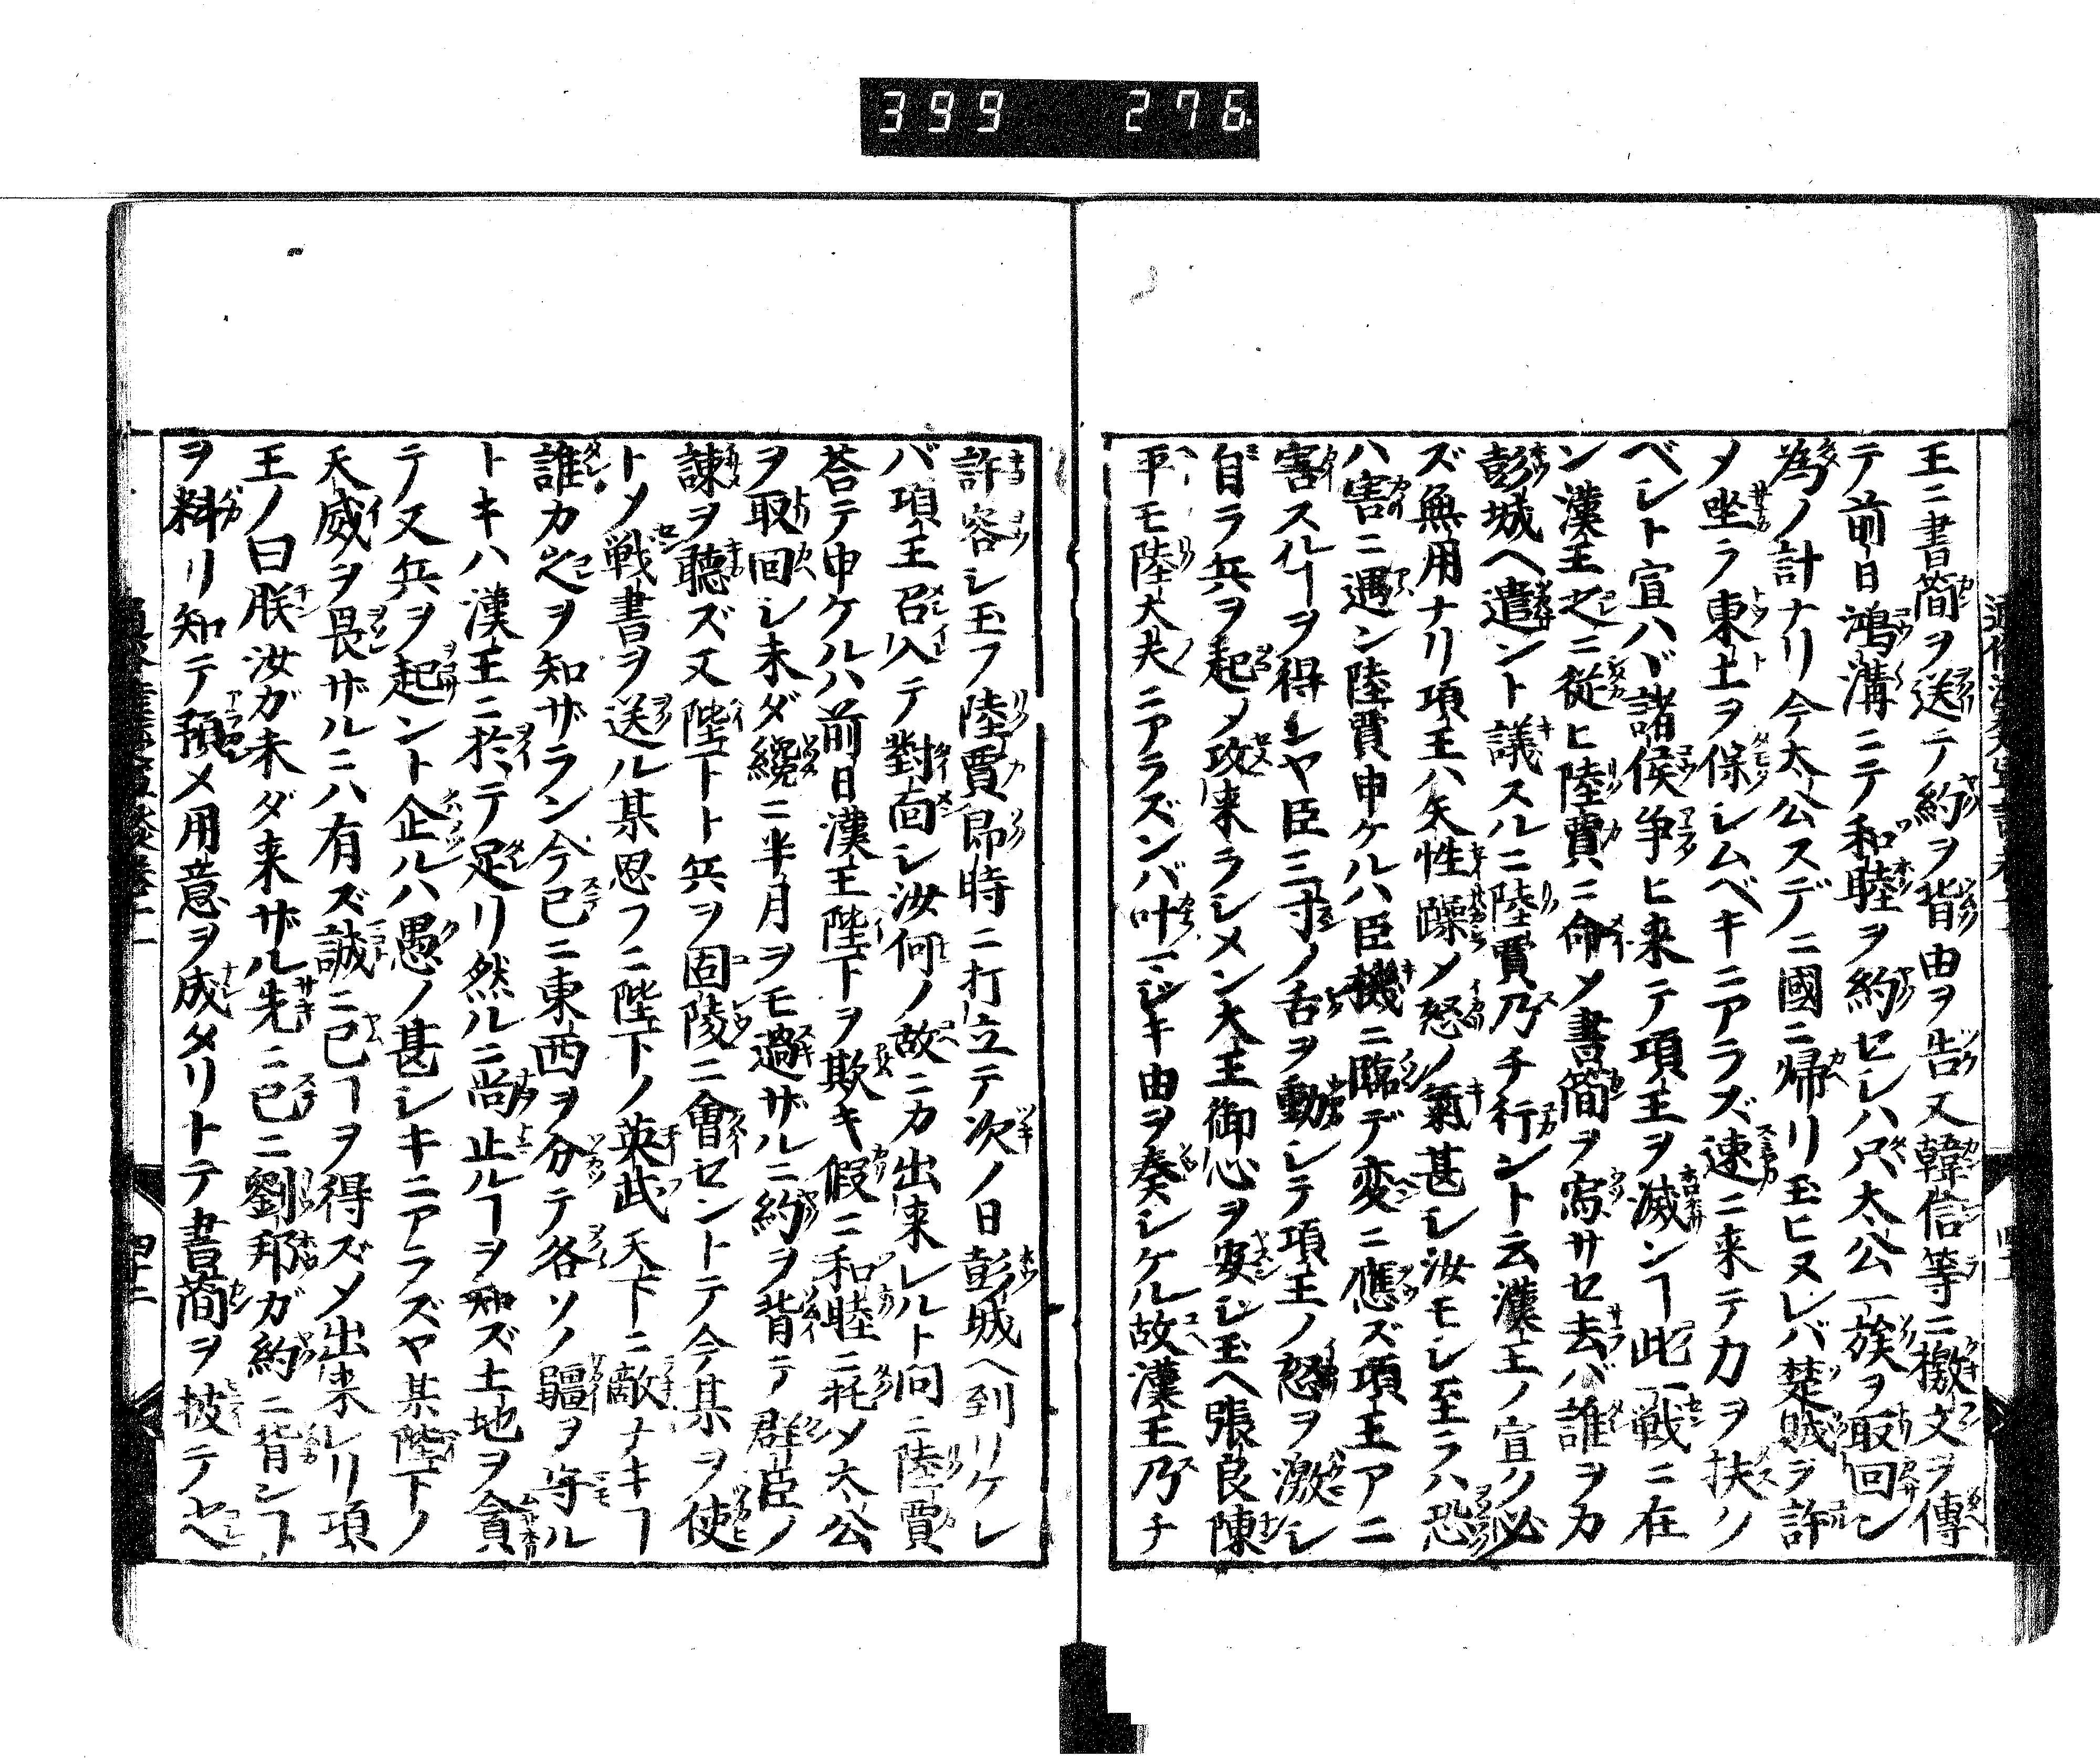 399 276
王ニ書簡ヲ送テ約ヲ背由ヲ告又韓信等ニ檄文ヲ傳
テ前日鴻溝ニテ和睦ヲ約セシハ只太公一族ヲ取回ン
為ノ計ナリ今太公スデニ國ニ帰リ玉ヒヌレバ楚賊ヲ許
メ坐ラ東土ヲ保シムベキニアラズ速ニ来テ力ヲ扶ソ
ベシト宣ハバ諸侯争ヒ来テ項王ヲ滅ンヿ此一戦ニ在
ン漢王之ニ従ヒ陸賈ニ命メ書簡ヲ寫サセ去バ誰ヲカ
彭城ヘ遣ント議スルニ陸賈乃チ行ント云漢王ノ宣ク必
ズ無用ナリ項王ハ矢性躁メ怒ノ氣甚シ汝モシ至ラハ恐
ハ害ニ遇ン陸賈申ケルハ臣機ニ臨デ変ニ應ズ項王アニ
害スルヿヲ得シヤ臣三寸ノ舌ヲ動シテ項王ノ怒ヲ激シ
自ラ兵ヲ起メ攻来ラシメン大王御心ヲ安シ玉ヘ張良陳
平モ陸大夫ニアラズンバ叶マジキ由ヲ奏シケル故漢王乃チ
許容シ玉フ陸賈即時ニ打立テ次ノ日彭城ヘ到リケレ
バ項王召入テ對面シ汝何ノ故ニカ出来レルト問ニ陸賈
荅テ申ケルハ前日漢王陛下ヲ欺キ假ニ和睦ニ托メ太公
ヲ取回シ未ダ纔ニ半月ヲモ過ザルニ約ヲ背テ群臣ノ
諫ヲ聽ズ又陛下ト兵ヲ固陵ニ會セントテ今某ヲ使
トメ戦書ヲ送ル某思フニ陛下ノ英武天下ニ敵ナキヿ
誰カ之ヲ知ザラン今已ニ東西ヲ分テ各ソノ疆ヲ守ル
トキハ漢王ニ於テ足リ然ルニ尚止ルヿヲ知ズ土地ヲ貪
テ又兵ヲ起ント企ルハ愚ノ甚シキニアラズヤ某陛下ノ
天威ヲ畏ザルニハ有ズ誠ニ已ヿヲ得ズメ出来レリ項
王ノ曰朕汝ガ未ダ来ザル先ニ已ニ劉邦ガ約ニ背ンヿ
ヲ料リ知テ預メ用意ヲ成タリトテ書簡ヲ披テ之